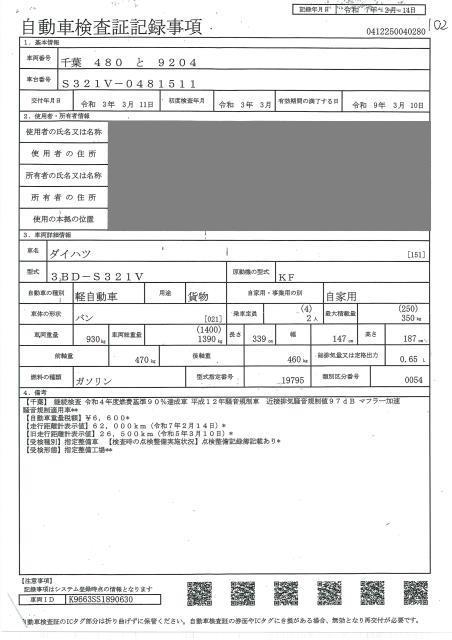 記録年月日 令和 7年 2月 14日
自動車検査証記録事項
0412250040280
102
1. 基本情報
車両番号 千葉 480 と 9204
車台番号 S321V-0481511
交付年月日 令和 3年 3月 11日 初度検査年月 令和 3年 3月 有効期間の満了する日 令和 9年 3月 10日
2. 使用者・所有者情報
使用者の氏名又は名称
使用者の住所
所有者の氏名又は名称
所有者の住所
使用の本拠の位置
3. 車両詳細情報
車名 ダイハツ [151]
型式 3BD-S321V 原動機の型式 KF
自動車の種別 軽自動車 用途 貨物 自家用・事業用の別 自家用
車体の形状 バン [021] 乗車定員 (4) 2人 最大積載量 (250) 350kg
車両重量 930kg 車両総重量 (1400) 1390kg 長さ 339cm 幅 147cm 高さ 187cm
前軸重 470kg 後軸重 460kg 総排気量又は定格出力 0.65 L
燃料の種類 ガソリン 型式指定番号 19795 類別区分番号 0054
4. 備考
【千葉】 継続検査 令和4年度燃費基準90%達成車 平成12年騒音規制車 近接排気騒音規制値97dB マフラー加速
騒音規制適用車**
【自動車重量税額】¥6,600*
【走行距離計表示値】62,000km(令和7年2月14日)*
【旧走行距離計表示値】26,500km(令和5年3月10日)*
【受検種別】指定整備車 【検査時の点検整備実施状況】点検整備記録簿記載あり*
【受検形態】指定整備工場**
【注意事項】
記録事項はシステム登録時点の情報となります
車両ID K9663SS1890630
自動車検査証のICタグ部分は折り曲げずに保管ください。自動車検査証の券面やICタグにき損がある場合、無効となり再交付が必要です。